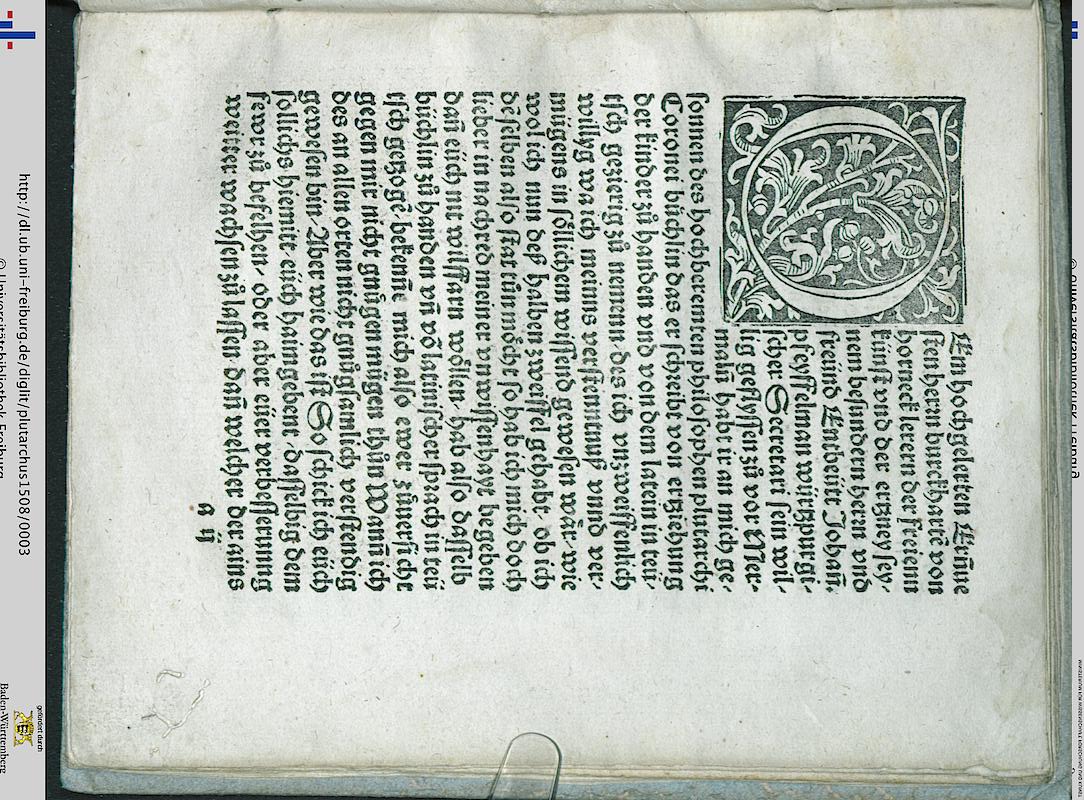 En hochgelerten Erñue
sten herrn burckhartē von
horneck lerern der freienn
künst vnd der ertzney sey⸗
nem besundern herrn vnd
freünd Entbeütt Johañ.
pfeyffelman würtzpurgi⸗
scher Secretari sein wil⸗
lig geflyssen zů vor Mer⸗
maln habt ir an mich ge⸗
sonnen des hochberemten philosophen plutarchi
Coronei büchlin das er schreibt von erziehung
der kinder zů handen vnd von dem latein in teü⸗
tsch gezierig zů nemenn des ich vnzweiffenlich
willyg wa ich meinns verstenntnuß vnnd ver⸗
mügens in söllichem wissend gewesen wär⸗ wie
wol ich nun deß halben zweiffel gehabt⸗ ob ich
deselben also stat tůn möcht so hab ich mich doch
lieber in nachred meiner vnwissenhayt begeben
dañ eüch nit wilffarn wöllen⸗ hab also dasselb
büchlin zů handen vñ vō latinischer sprach in teü
tsch gezogē⸗ bekenne mich also ewer zůuersicht
gegen mir nicht gnůgen mügen thůn Wann ich
des an allen orten nicht gnůgsamlich verstendig
gewesen bin⸗ Aber wie das ist So schick ich eüch
sollichs hiemitt eüch haimgebent dasselbig dem
fewr zů befelhen⸗ oder aber einer verbesserung
weitter wachsen zů lassen dañ welcher der ains
a ij
http://dl.ub.uni-freiburg.de/diglit/plutarchus1508/0003
© Universitätsbibliothek Freiburg
gefördert durch
Baden-Württemberg